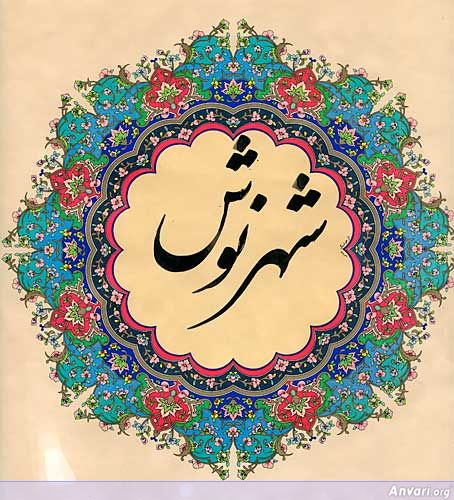 شهرنوش
Anvari.org